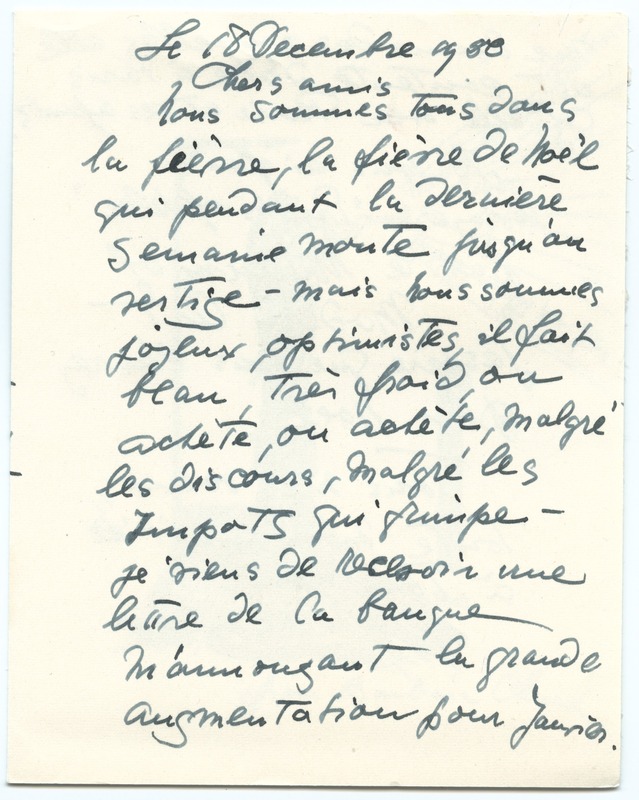 Le 18 Decembre 1950
Chers amis
Nous sommes tous dans
la fièvre, la fièvre de Noël
qui pendant la dernière
semaine monte jusqu'au
vertige - mais nous sommes
joyeux, optimistes, il fait
beau, très froid, on
achète, on achète, malgré
les discours, malgré les
Impots qui grimpe -
je viens de recevoir une
lettre de la banque
m'annonçant la grande
augmentation pour Janvier.